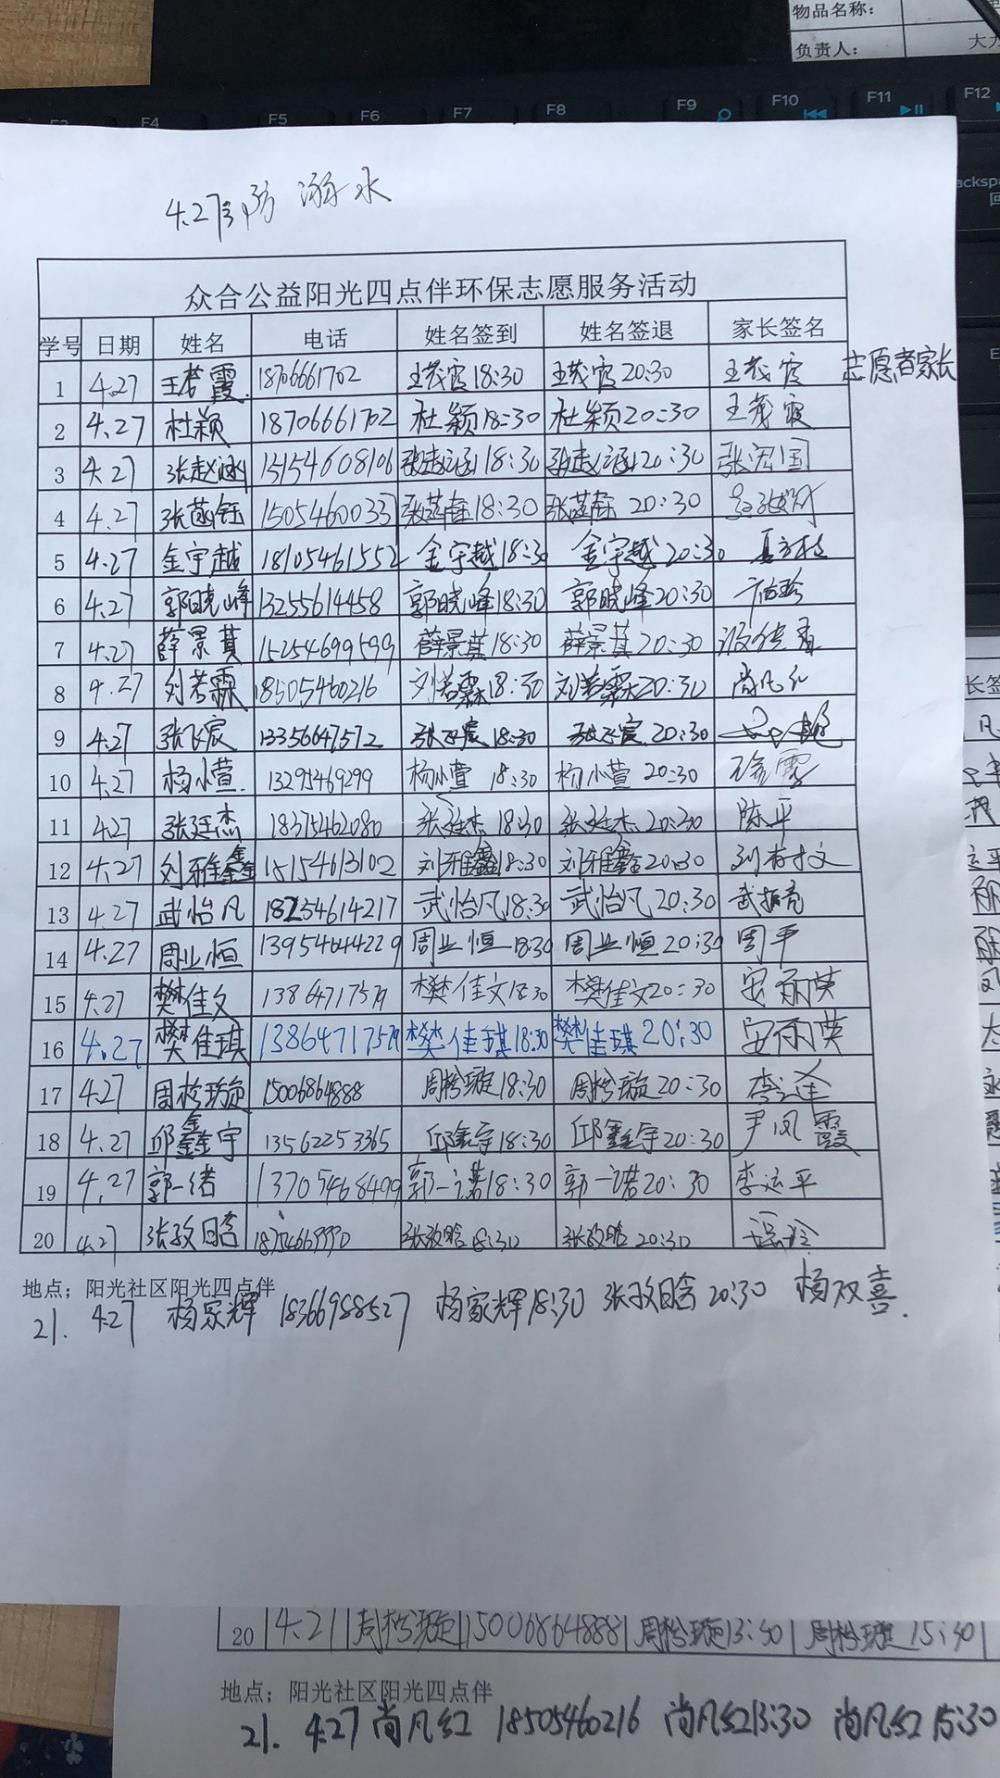 物品名称：
负责人：
F4 F5 F6 F7 F8 F9 F10 F11 F12
4.27 防溺水
众合公益阳光四点伴环保志愿服务活动
学号 日期 姓名 电话 姓名签到 姓名签退 家长签名
1 4.27 王茂霞 18706661702 王茂霞 18:30 王茂霞 20:30 王茂霞 志愿者家长
2 4.27 杜颖 18706661702 杜颖 18:30 杜颖 20:30 王茂霞
3 4.27 张赵涵 15154608106 张赵涵 18:30 张赵涵 20:30 张宏国
4 4.27 张菡钰 1505460033 张菡钰 18:30 张菡钰 20:30
5 4.27 金宇越 18105461552 金宇越 18:30 金宇越 20:30
6 4.27 郭晓峰 13255614458 郭晓峰 18:30 郭晓峰 20:30
7 4.27 薛景萁 15254699599 薛景萁 18:30 薛景萁 20:30
8 4.27 刘若霖 18505460216 刘若霖 18:30 刘若霖 20:30 尚凡红
9 4.27 张飞宸 13356647572 张飞宸 18:30 张飞宸 20:30
10 4.27 杨小萱 13295469299 杨小萱 18:30 杨小萱 20:30
11 4.27 张廷杰 18375462080 张廷杰 18:30 张廷杰 20:30 陈平
12 4.27 刘雅鑫 15154613102 刘雅鑫 18:30 刘雅鑫 20:30 刘树文
13 4.27 武怡凡 18254614217 武怡凡 18:30 武怡凡 20:30 武振亮
14 4.27 周业恒 13954644229 周业恒 18:30 周业恒 20:30 周平
15 4.27 樊佳文 138647175 樊佳文 18:30 樊佳文 20:30 安丽英
16 4.27 樊佳琪 138647175 樊佳琪 18:30 樊佳琪 20:30 安丽英
17 4.27 周松璇 15006864888 周松璇 18:30 周松璇 20:30
18 4.27 邱鑫宇 13562253365 邱鑫宇 18:30 邱鑫宇 20:30 尹凤霞
19 4.27 郭一诺 13705468499 郭一诺 18:30 郭一诺 20:30 李运平
20 4.27 张孜晗 张孜晗 18:30 张孜晗 20:30
地点：阳光社区阳光四点伴
21. 4.27 杨家辉 18366988527 杨家辉 18:30 张孜晗 20:30 杨双喜.
20 4.21 周松璇 15006864888 周松璇 13:30 周松璇 15:30
地点：阳光社区阳光四点伴
21. 4.27 尚凡红 18505460216 尚凡红 13:30 尚凡红 15:30